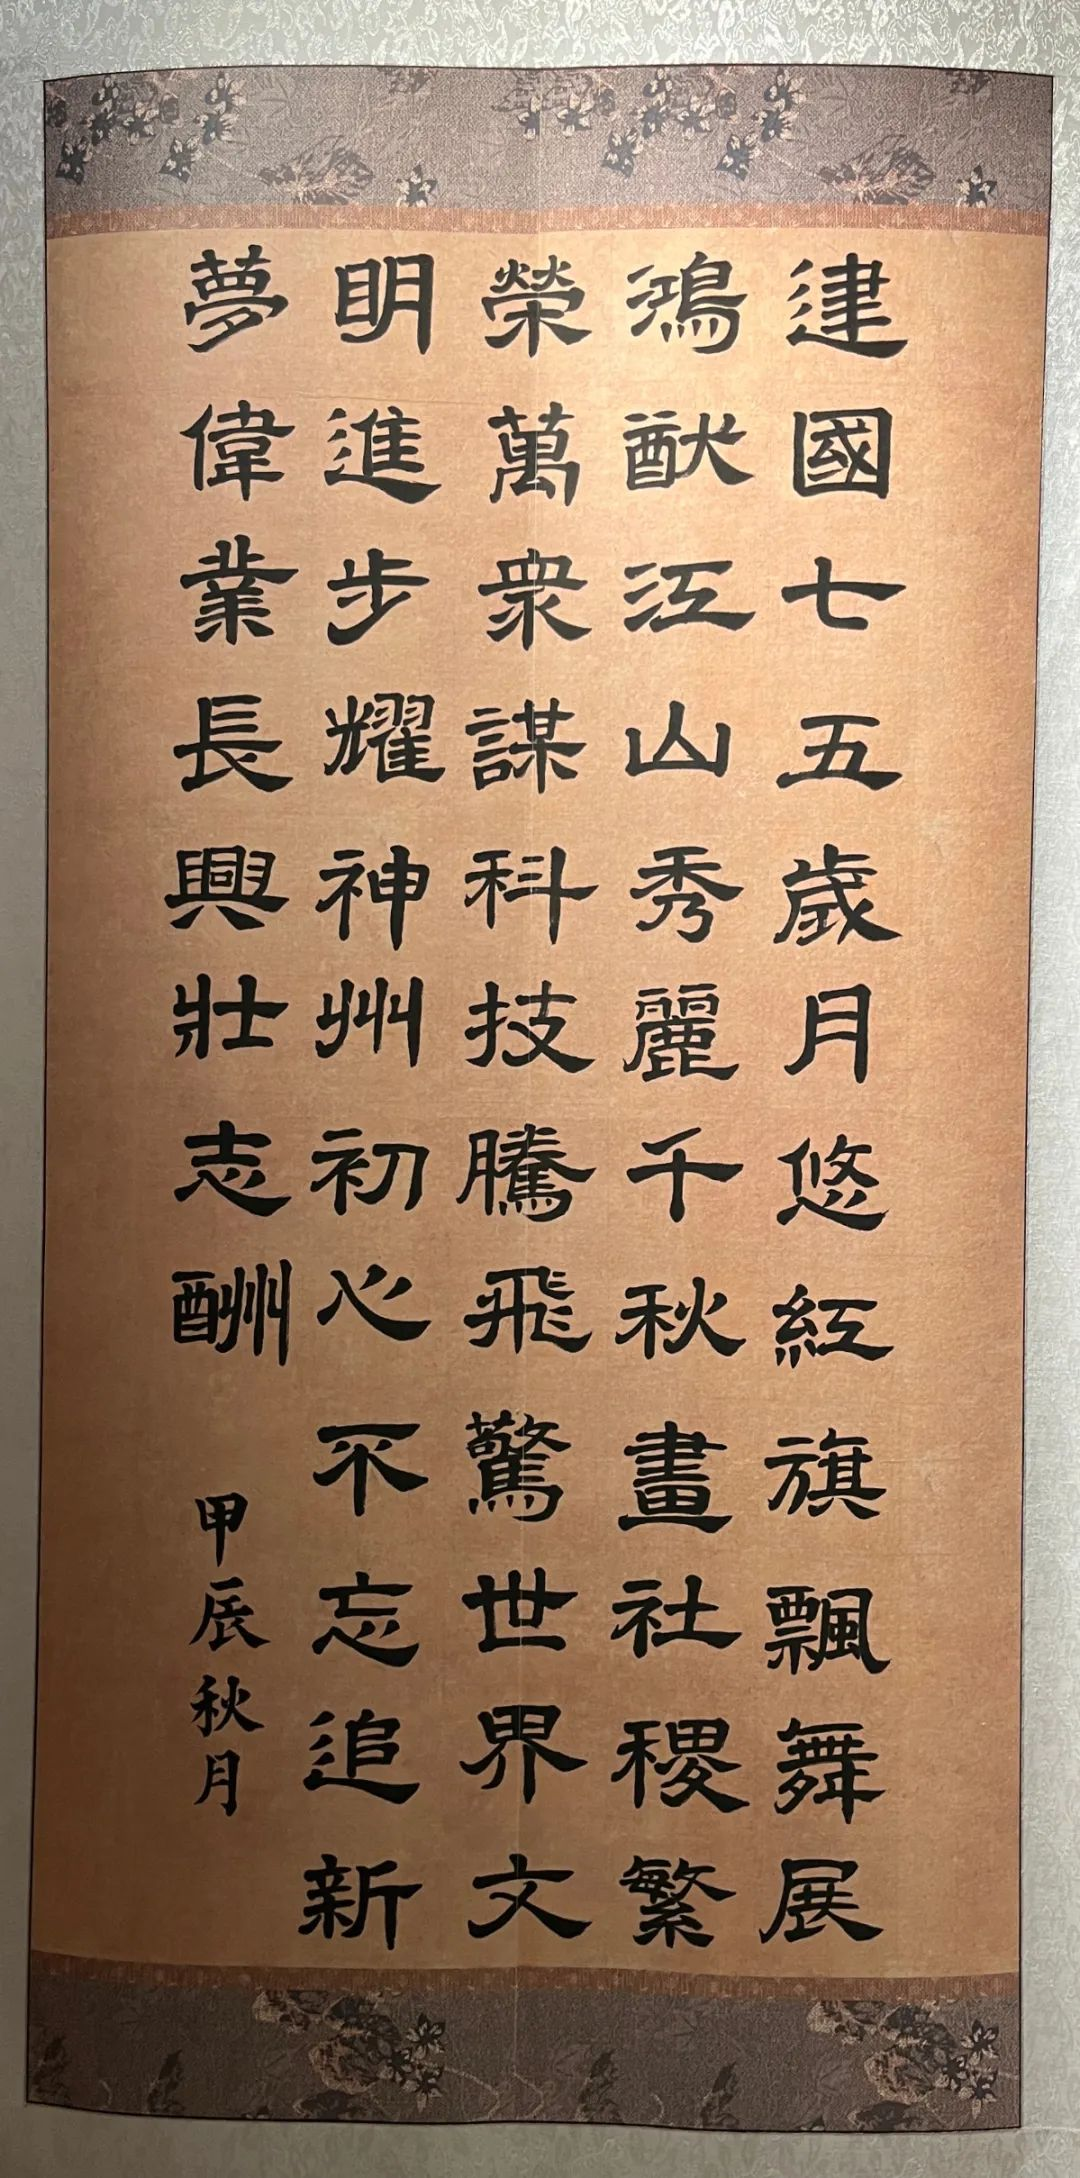 建國七五歲月悠紅旗飄舞展
鴻猷江山秀麗千秋畫社稷繁
榮萬衆謀科技騰飛驚世界文
明進步耀神州初心不忘追新
夢偉業長興壯志酬
甲辰秋月